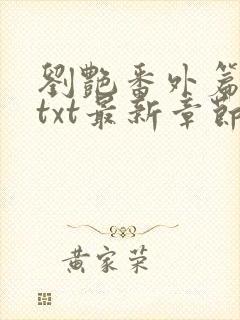 劉艷番外篇
txt最新章節
黄家荣